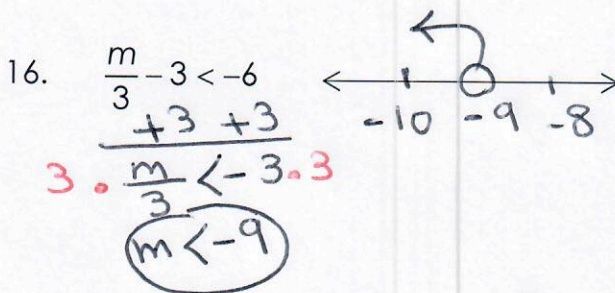 16. m/3 - 3 < -6
+3 +3
3 · m/3 < -3 · 3
m < -9
-10 -9 -8